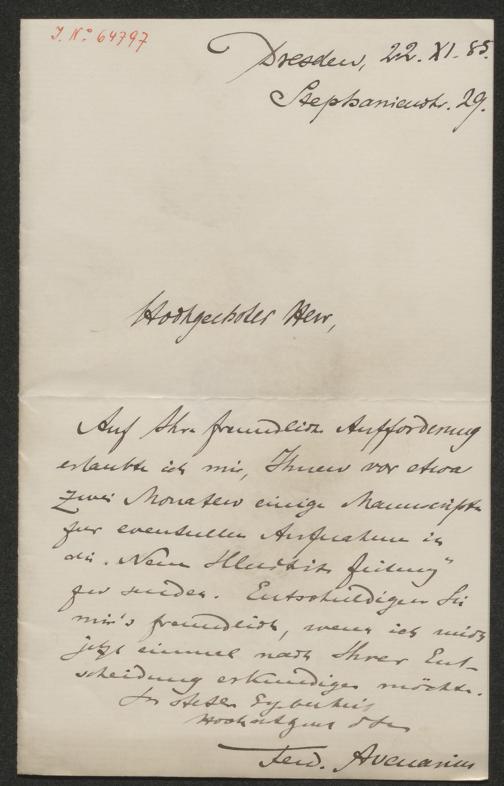 J. N° 64797
Dresden, 22. XI. 85.
Stephanienstr. 29.
Hochgeehrter Herr,
Auf Ihre freundliche Aufforderung
erlaubte ich mir, Ihnen vor etwa
zwei Monaten einige Manuscripte
für eventuelle Aufnahme in
die „Neue Illustrirte Zeitung"
zu senden. Entschuldigen Sie
mir's freundlich, wenn ich mich
jetzt einmal nach Ihrer Ent-
scheidung erkundigen möchte.
In steter Ergebenheit
hochachtungsvoll
Ferd. Avenarius